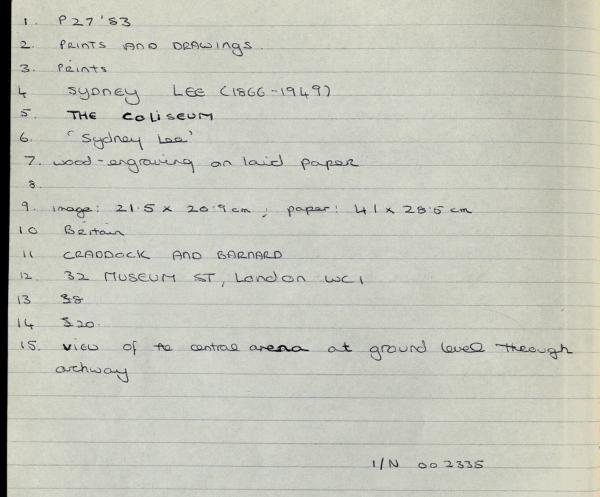 1. P27'83
2. PRINTS AND DRAWINGS.
3. Prints
4 SYDNEY LEE (1866-1949)
5. THE COLISEUM
6. 'Sydney Lee'
7. wood-engraving on laid paper
8.
9. image: 21.5 x 20.9 cm; paper: 41 x 28.5 cm
10 Britain
11 CRADDOCK AND BARNARD
12. 32 MUSEUM ST, London WC1
13 $8
14 $20.
15. view of the central arena at ground level through
archway
I/N 002335